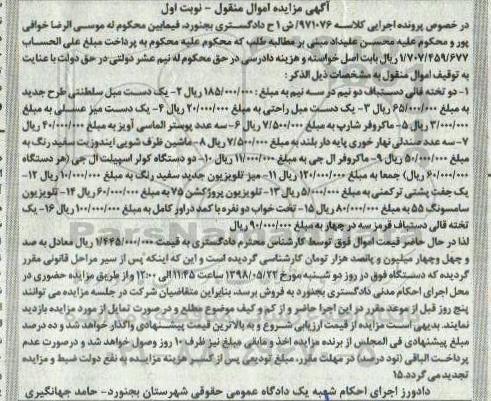 آگهی مزایده اموال منقول - نوبت اول
در خصوص پرونده اجرایی کلاسه ۹۷۱۰۷۶/ش ا ح دادگستری بجنورد، فیمابین محکوم له موسی الرضا خوافی
پور و محکوم علیه محسن علیداد مبنی بر مطالبه طلب که محکوم علیه محکوم به پرداخت مبلغ علی الحساب
۱/۷۰۷/۴۵۹/۶۷۷ ریال بابت اصل خواسته و هزینه دادرسی در حق محکوم له نیم عشر دولتی در حق دولت با عنایت
به توقیف اموال منقول به مشخصات ذیل الذکر:
۱- دو تخته قالی دستباف دو نیم در سه نیم به مبلغ: ۱۸۵/۰۰۰/۰۰۰ ریال ۲- یک دست مبل سلطنتی طرح جدید
به مبلغ ۶۵/۰۰۰/۰۰۰ ریال ۳- یک دست مبل راحتی به مبلغ ۲۰/۰۰۰/۰۰۰ ریال ۴- یک دست میز عسلی به مبلغ
۳/۰۰۰/۰۰۰ ریال ۵- ماکروفر شارپ به مبلغ ۷/۵۰۰/۰۰۰ ریال ۶- سه عدد پوستر الماسی آویز به مبلغ ۴۰/۰۰۰/۰۰۰ ریال
۷- سه عدد صندلی نهار خوری پایه دار بلند به مبلغ ۷/۵۰۰/۰۰۰ ریال ۸- ماشین ظرف شویی ایندوزیت سفید رنگ به
مبلغ ۵۰/۰۰۰/۰۰۰ ریال ۹- ماکروفر ال جی به مبلغ ۱۱/۰۰۰/۰۰۰ ریال ۱۰- دو دستگاه کولر اسپیلت ال جی (هر دستگاه
۶۰/۰۰۰/۰۰۰ ریال) جمعا به مبلغ ۱۲۰/۰۰۰/۰۰۰ ریال ۱۱- میز تلویزیون جدید سفید رنگ به مبلغ ۱۰/۰۰۰/۰۰۰ ریال ۱۲-
یک جفت پشتی ترکمنی به مبلغ ۵/۰۰۰/۰۰۰ ریال ۱۳- تلویزیون پروژکشن ۷۵ به مبلغ ۶۰/۰۰۰/۰۰۰ ریال ۱۴- تلویزیون
سامسونگ ۵۵ به مبلغ ۸۰/۰۰۰/۰۰۰ ریال ۱۵- تخت خواب دو نفره با کمد دراور کامل به مبلغ ۱۰۰/۰۰۰/۰۰۰ ریال ۱۶- یک
تخته قالی دستباف قرمز سه در چهار به مبلغ ۹۰/۰۰۰/۰۰۰ ریال
لذا در حال حاضر قیمت اموال فوق توسط کارشناس محترم دادگستری به قیمت ۱/۴۴۵/۰۰۰/۰۰۰ ریال معادل به صد
و چهل وچهار میلیون و پانصد هزار تومان کارشناسی گردیده است و این که اینکه پس از سیر مراحل قانونی مقرر
گردیده که دستگاه فوق در روز دو شنبه مورخ ۱۳۹۸/۰۵/۲۲ ساعت ۱۱:۴۵ الی ۱۲:۰۰ و از طریق مزایده حضوری در
محل اجرای احکام مدنی دادگستری بجنورد به فروش برسد، بنابراین متقاضیان شرکت در جلسه مزایده می توانند
پنج روز قبل از موعد مقرر در این اجرا حاضر و از کم و کیف موضوع مطلع و درصورت تمایل از مورد مزایده بازدید
نمایند. بدیهی است مزایده از قیمت ارزیابی شروع و به بالاترین قیمت پیشنهادی واگذار خواهد شد و ده درصد
مبلغ پیشنهادی فی المجلس از برنده مزایده اخذ و مابقی مبلغ نیز ظرف ۱۰ روز وصول خواهد شد و درصورت عدم
پرداخت الباقی (نود درصد) در مهلت مقرر، مبلغ تودیعی پس از کسر هزینه مزایده به نفع دولت ضبط و مزایده
تجدید می گردد.۱۵
دادورز اجرای احکام شعبه یک دادگاه عمومی حقوقی شهرستان بجنورد- حامد جهانگیری